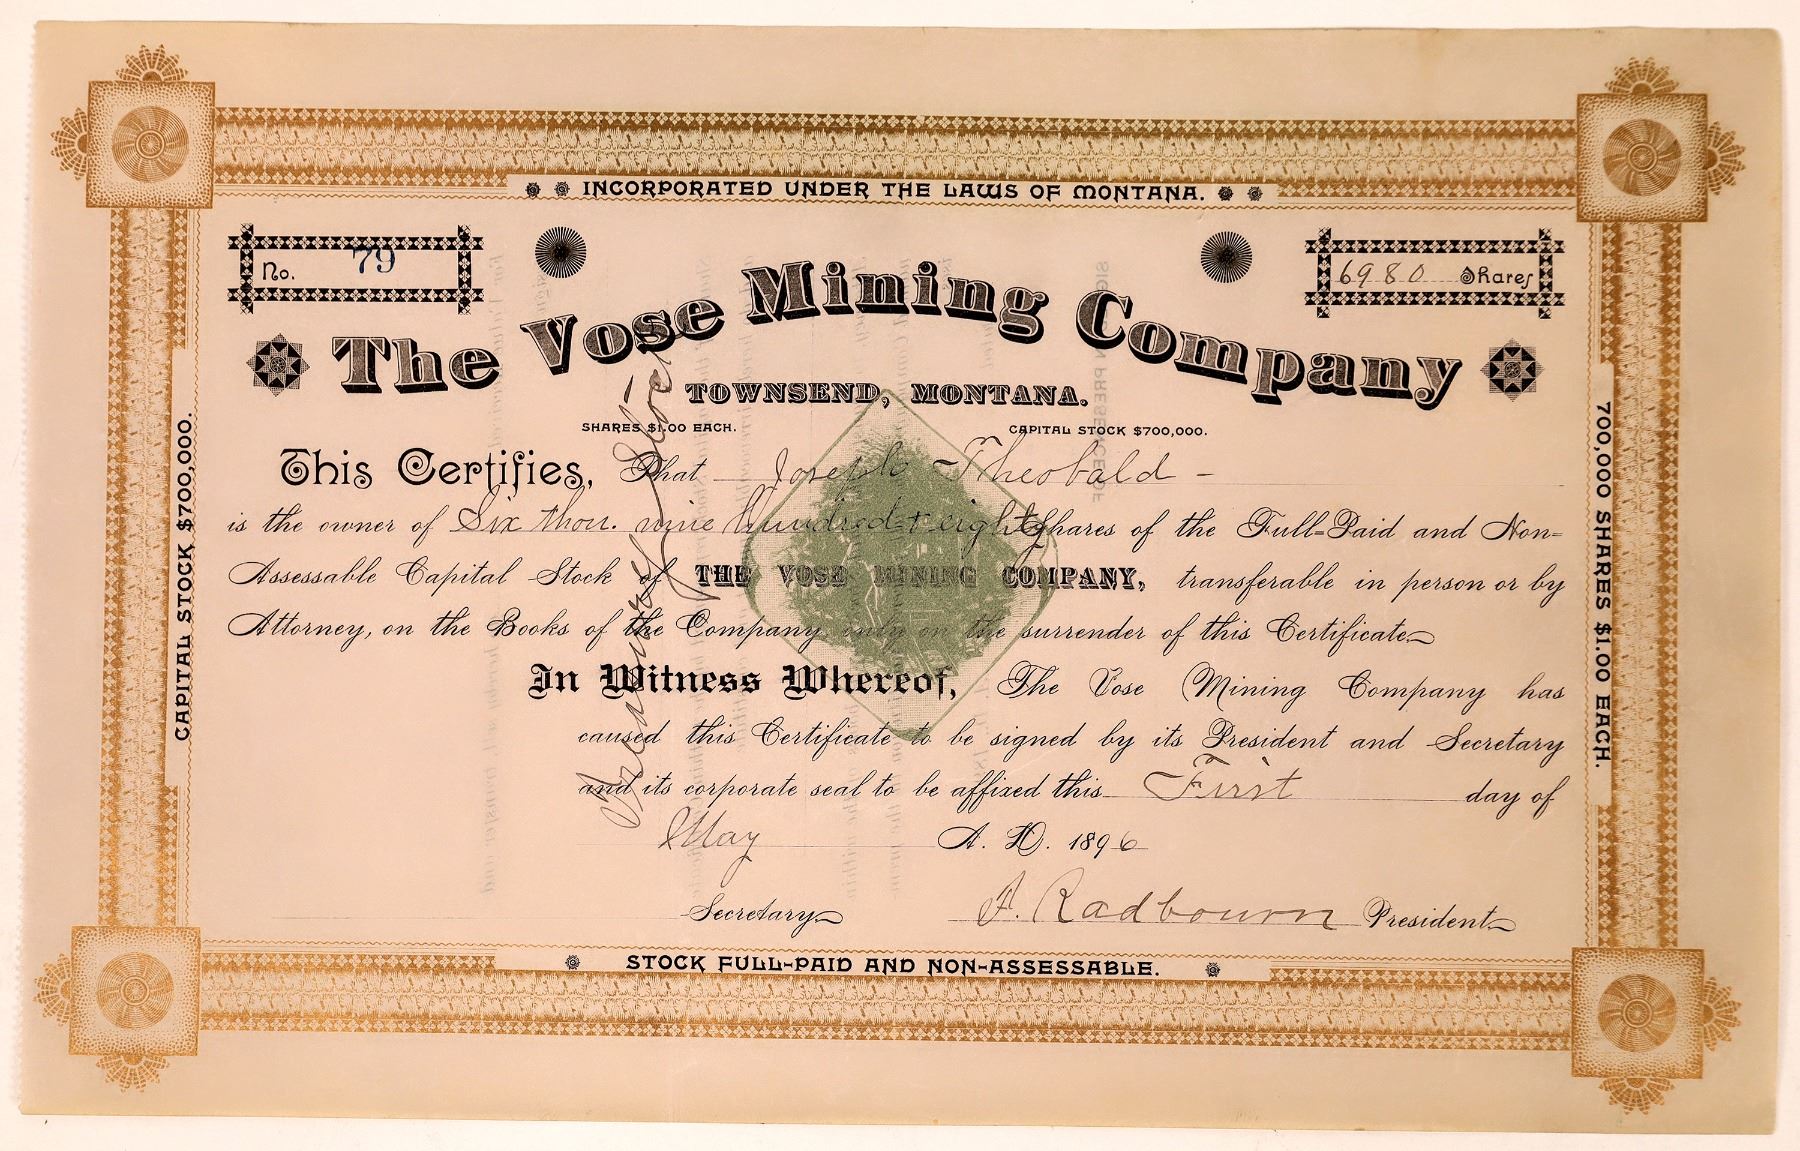 INCORPORATED UNDER THE LAWS OF MONTANA.
No. 79
6980 Shares
The Vose Mining Company
TOWNSEND, MONTANA.
SHARES $1.00 EACH. CAPITAL STOCK $700,000.
This Certifies, That Joseph Theobald
is the owner of Six thou. nine hundred + eighty Shares of the Full-Paid and Non-
Assessable Capital Stock of THE VOSE MINING COMPANY, transferable in person or by
Attorney, on the Books of the Company only on the surrender of this Certificate
In Witness Whereof, The Vose Mining Company has
caused this Certificate to be signed by its President and Secretary
and its corporate seal to be affixed this First day of
May A. D. 1896
Secretary
F. Radbourn President
STOCK FULL-PAID AND NON-ASSESSABLE.
CAPITAL STOCK $700,000.
700,000 SHARES $1.00 EACH.
Treasury Stock